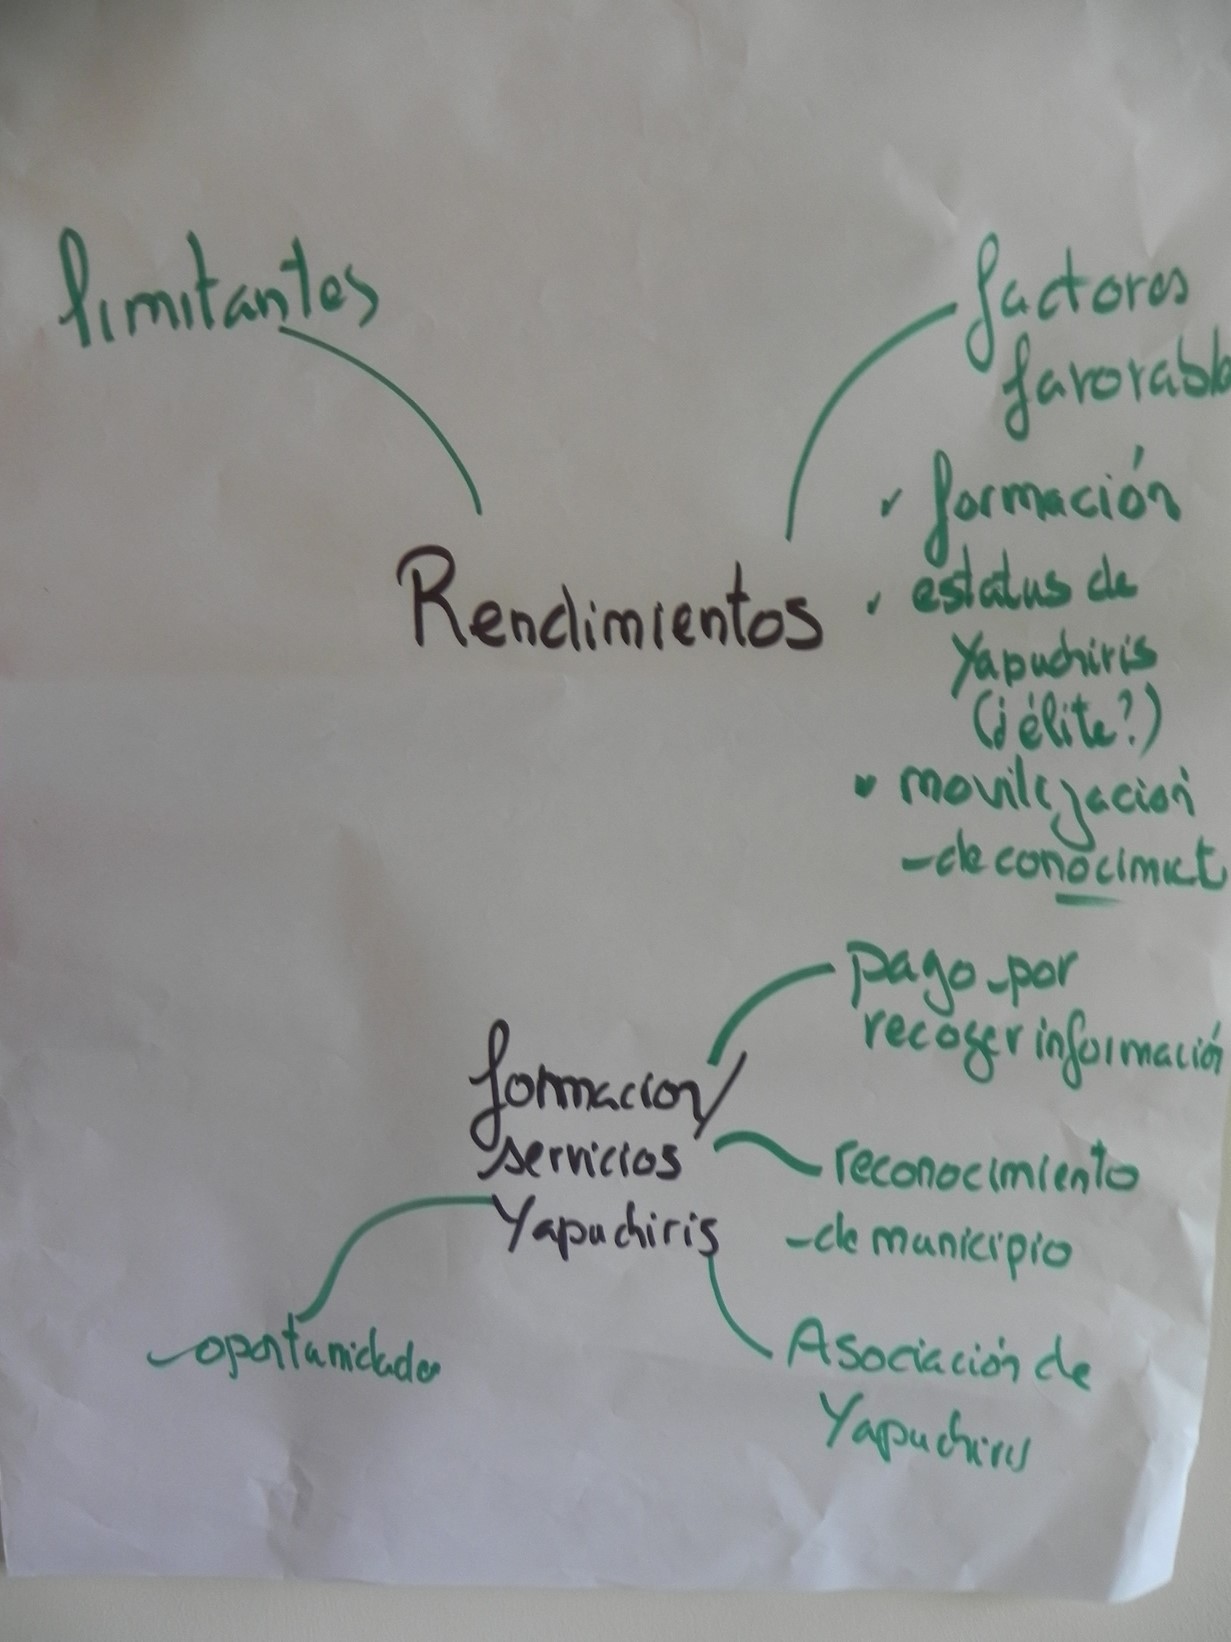 limitantes
factores
favorabl
Rendimientos
formación
estatus de
Yapuchiris
(¿élite?)
movilización
de conocimict
formacion/
servicios
Yapuchiris
pago por
recoger información
reconocimiento
de municipio
Asociación de
Yapuchiris
oportunidades